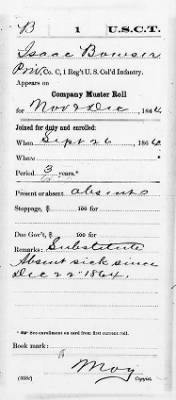 B 1 U.S.C.T.
Isaac Bowser
Priv, Co. C, 1 Reg't U. S. Col'd Infantry.
Appears on
Company Muster Roll
for Nov & Dec, 1864
Joined for duty and enrolled:
When Sept 26, 1864
Where *
Period 3 years.*
Present or absent absent
Stoppage, $ 100 for
Due Gov't, $ 100 for
Remarks: Substitute
Absent sick since
Dec 22" 1864.
*See enrollment on card from first current roll.
Book mark:
(358c) Moy
Copyist.